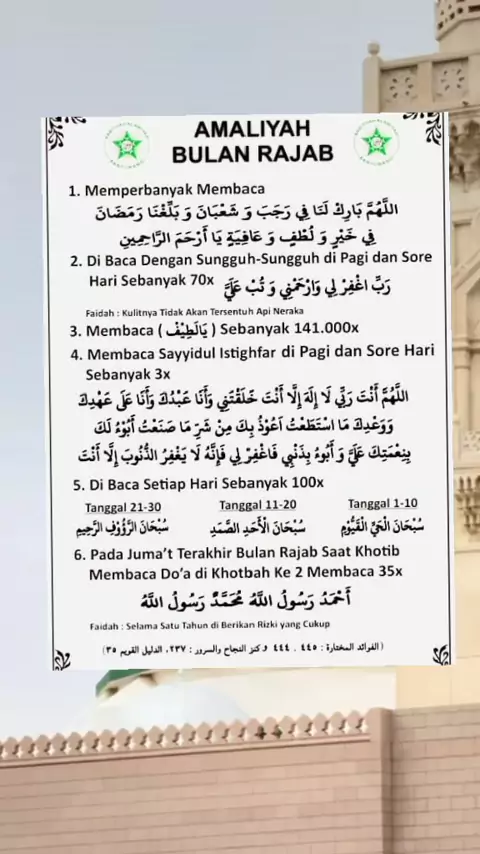 AMALIYAH
BULAN RAJAB
1. Memperbanyak Membaca
اللَّهُمَّ بَارِكْ لَنَا فِي رَجَبَ وَ شَعْبَانَ وَ بَلِّغْنَا رَمَضَانَ
فِي خَيْرٍ وَ لُطْفٍ وَ عَافِيَةٍ يَا أَرْحَمَ الرَّاحِمِينِ
2. Di Baca Dengan Sungguh-Sungguh di Pagi dan Sore
Hari Sebanyak 70x رَبِّ اغْفِرْ لِي وَارْحَمْنِي وَ تُبْ عَلَيَّ
Faidah : Kulitnya Tidak Akan Tersentuh Api Neraka
3. Membaca ( يَالَطِيْفُ ) Sebanyak 141.000x
4. Membaca Sayyidul Istighfar di Pagi dan Sore Hari
Sebanyak 3x
اللَّهُمَّ أَنْتَ رَبِّي لَا إِلَهَ إِلَّا أَنْتَ خَلَقْتَنِي وَأَنَا عَبْدُكَ وَأَنَا عَلَى عَهْدِكَ
وَوَعْدِكَ مَا اسْتَطَعْتُ اَعُوْذُ بِكَ مِنْ شَرِّ مَا صَنَعْتُ أَبُوْءُ لَكَ
بِنِعْمَتِكَ عَلَيَّ وَ أَبُوءُ بِذَنْبِي فَاغْفِرْ لِي فَإِنَّهُ لَا يَغْفِرُ الذُّنُوبَ إِلَّا أَنْتَ
5. Di Baca Setiap Hari Sebanyak 100x
Tanggal 21-30 Tanggal 11-20 Tanggal 1-10
سُبْحَانَ الرَّؤُوْفِ الرَّحِيمِ سُبْحَانَ الْأَحَدِ الصَّمَدِ سُبْحَانَ الْحَيِّ الْقَيُّوْمِ
6. Pada Juma't Terakhir Bulan Rajab Saat Khotib
Membaca Do'a di Khotbah Ke 2 Membaca 35x
أَحْمَدُ رَسُولُ اللَّهُ مُحَمَّدٌ رَسُولُ اللَّهُ
Faidah : Selama Satu Tahun di Berikan Rizki yang Cukup
(الفوائد المختارة : ٤٤٥ . ٤٤٤ و كنز النجاح والسرور : ٢٣٧. الدليل القويم ٣٥)